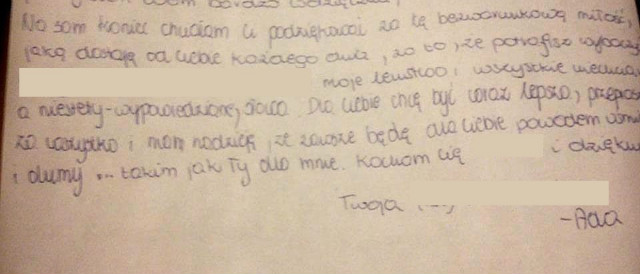 Na sam koniec chciałam Ci podziękować za tę bezwarunkową miłość,
jaką dostaję od Ciebie każdego dnia, za to, że potrafisz
moje lenistwo i wszystkie
a niestety-wypowiedziane, słowa. Dla Ciebie chcę być coraz lepsza,
za wszystko i mam nadzieję, że zawsze będę dla Ciebie powodem
i dumy ... takim jak Ty dla mnie. Kocham Cię i
Twoja
-Ada